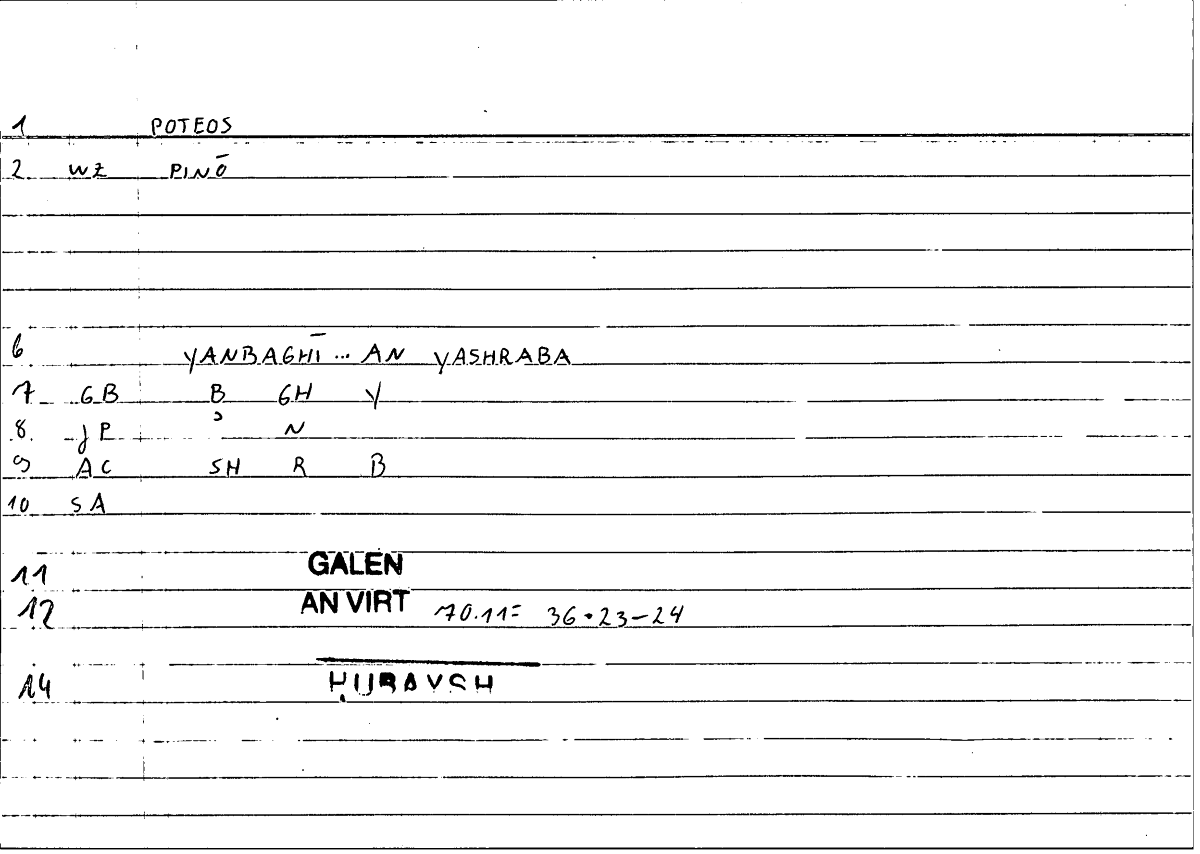 1 POTEOS
2. WZ PINŌ
6 YANBAGHĪ ... AN YASHRABA
7 GB B GH Y
8. JP ʾ N
9 AC SH R B
10 SA
11 GALEN
12 AN VIRT 70.11= 36.23-24
14 ḤUBAYSH